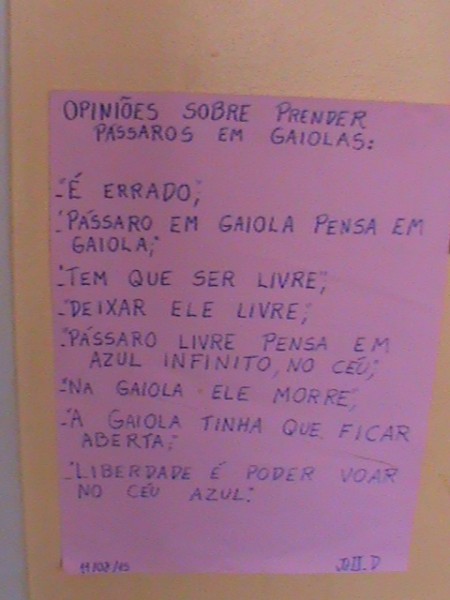 OPINIÕES SOBRE PRENDER
PÁSSAROS EM GAIOLAS:
-"É ERRADO";
-"PÁSSARO EM GAIOLA PENSA EM
GAIOLA";
-"TEM QUE SER LIVRE";
-"DEIXAR ELE LIVRE";
-"PÁSSARO LIVRE PENSA EM
AZUL INFINITO, NO CÉU";
-"NA GAIOLA ELE MORRE";
-"A GAIOLA TINHA QUE FICAR
ABERTA";
-"LIBERDADE É PODER VOAR
NO CÉU AZUL".